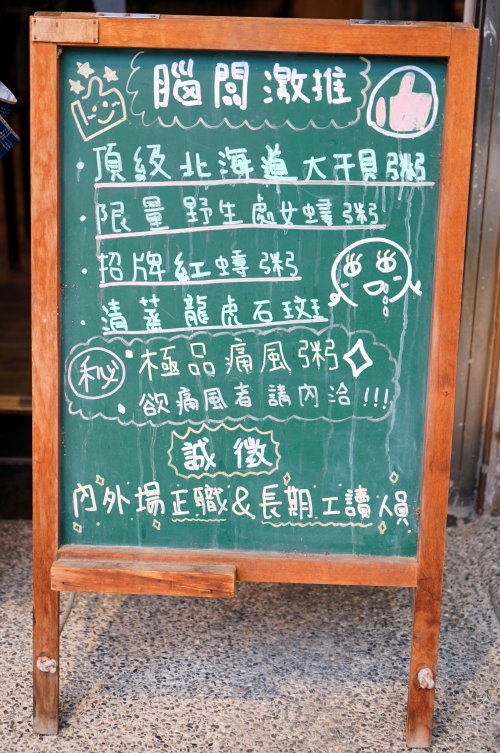 腦闆激推
· 頂級北海道大干貝粥
· 限量野生處女蟳粥
· 招牌紅蟳粥
· 清蒸龍虎石斑
秘 · 極品痛風粥
· 欲痛風者請內洽!!!
誠徵
內外場正職&長期工讀人員